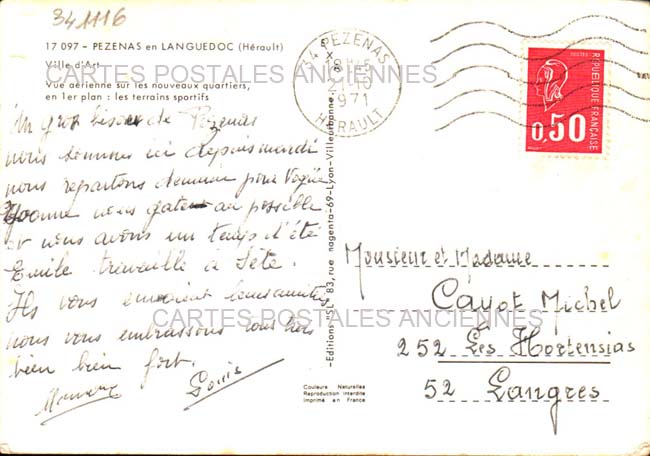 341116
17 097 - PEZENAS en LANGUEDOC (Hérault)
Ville d'Art
Vue aérienne sur les nouveaux quartiers,
en 1er plan : les terrains sportifs
CARTES POSTALES ANCIENNES
34 PEZENAS
21-10
1971
HERAULT
REPUBLIQUE FRANÇAISE
0,50
Un gros de Pezenas
nous sommes ici depuis mardi
nous repartons demain pour
Yvonne nous gate au possible
et nous avons un temps d'été
Emile travaille à Sète.
Ils vous envoient
nous vous embrassons tous
bien bien fort.
Louis
Editions "SL" 83, rue nagenta-69-Lyon-Villeurbanne
Monsieur et Madame
Cayot Michel
CARTES POSTALES ANCIENNES
252 Les Hortensias
52 Langres
Couleurs Naturelles
Reproduction Interdite
Imprimé en France